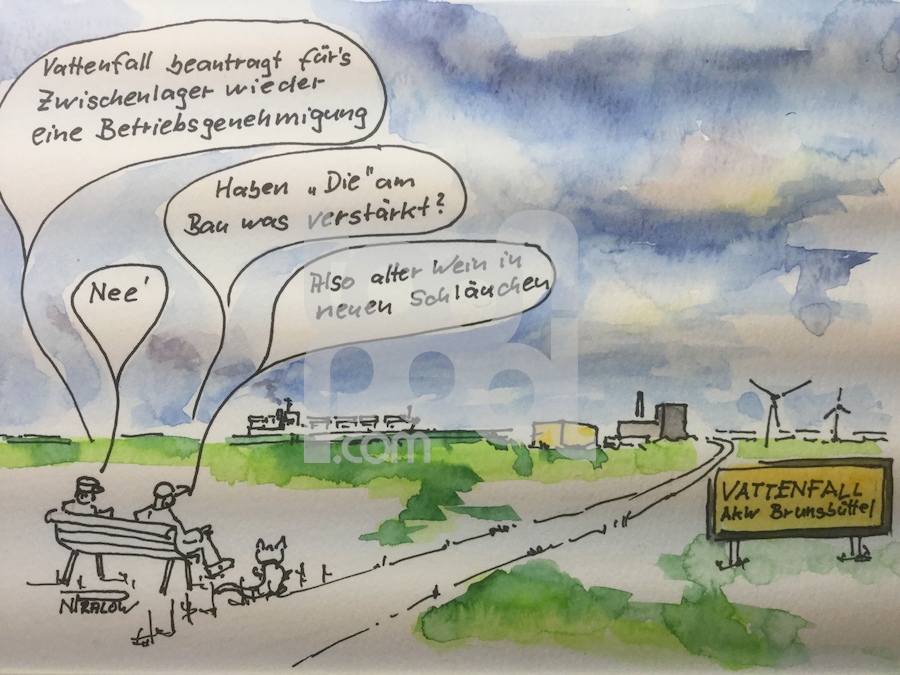 Vattenfall beantragt für's
Zwischenlager wieder
eine Betriebsgenehmigung
Haben „Die" am
Bau was verstärkt?
Nee'
Also alter Wein in
neuen Schläuchen
.com
VATTENFALL
AKW Brunsbüttel